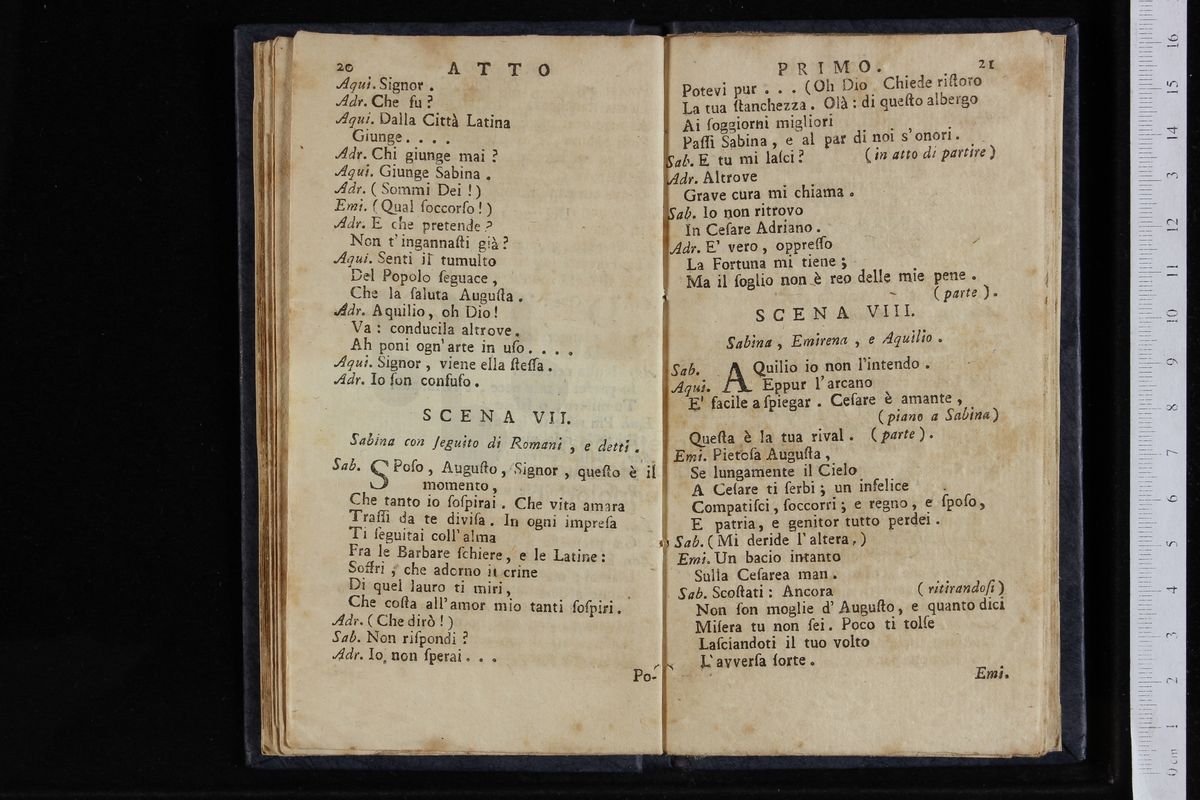 20 ATTO
Aqui. Signor .
Adr. Che fu ?
Aqui. Dalla Città Latina
Giunge. . . .
Adr. Chi giunge mai ?
Aqui. Giunge Sabina .
Adr. ( Sommi Dei ! )
Emi. ( Qual ſoccorſo ! )
Adr. E che pretende ?
Non t'ingannaſti già ?
Aqui. Senti il tumulto
Del Popolo ſeguace ,
Che la ſaluta Auguſta .
Adr. Aquilio, oh Dio !
Va : conducila altrove.
Ah poni ogn'arte in uſo. . . .
Aqui. Signor , viene ella ſteſſa .
Adr. Io ſon confuſo .
SCENA VII.
Sabina con ſeguito di Romani , e detti .
Sab. SPoſo , Auguſto , Signor , queſto è il
momento,
Che tanto io ſoſpirai . Che vita amara
Traſſi da te diviſa . In ogni impreſa
Ti ſeguitai coll'alma
Fra le Barbare ſchiere, e le Latine :
Soffri , che adorno il crine
Di quel lauro ti miri,
Che coſta all'amor mio tanti ſoſpiri .
Adr. ( Che dirò ! )
Sab. Non riſpondi ?
Adr. Io non ſperai. . .
Po-
PRIMO. 21
Potevi pur . . . ( Oh Dio Chiede riſtoro
La tua ſtanchezza . Olà : di queſto albergo
Ai ſoggiorni migliori
Paſſi Sabina , e al par di noi s'onori .
Sab. E tu mi laſci ? ( in atto di partire )
Adr. Altrove
Grave cura mi chiama .
Sab. Io non ritrovo
In Ceſare Adriano .
Adr. E' vero , oppreſſo
La Fortuna mi tiene ;
Ma il ſoglio non è reo delle mie pene .
( parte ) .
SCENA VIII.
Sabina , Emirena , e Aquilio .
Sab. AQuilio io non l'intendo .
Aqui. Eppur l'arcano
E' facile a ſpiegar . Ceſare è amante ,
( piano a Sabina )
Queſta è la tua rival . ( parte ) .
Emi. Pietoſa Auguſta ,
Se lungamente il Cielo
A Ceſare ti ſerbi ; un infelice
Compatiſci , ſoccorri ; e regno , e ſpoſo ,
E patria , e genitor tutto perdei .
Sab. ( Mi deride l'altera . )
Emi. Un bacio intanto
Sulla Ceſarea man .
Sab. Scoſtati : Ancora ( ritirandoſi )
Non ſon moglie d' Auguſto , e quanto dici
Miſera tu non ſei . Poco ti tolſe
Laſciandoti il tuo volto
L'avverſa ſorte .
Emi.
0 cm 1 2 3 4 5 6 7 8 9 10 11 12 13 14 15 16